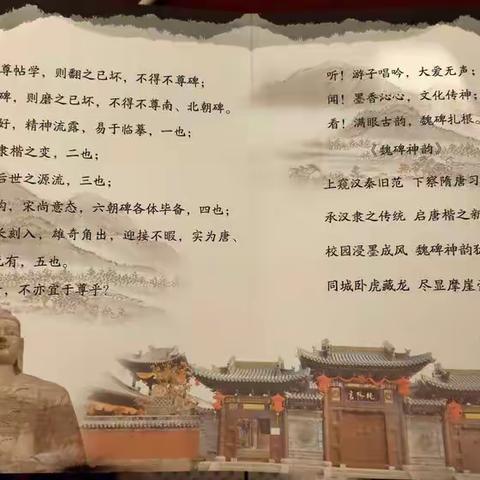 尊帖学，则翻之已坏，不得不尊碑；
碑，则磨之已坏，不得不尊南、北朝碑。
好，精神流露，易于临摹，一也；
隶楷之变，二也；
后世之源流，三也；
，宋尚意态，六朝碑各体毕备，四也；
长刻入，雄奇角出，迎接不暇，实为唐、
有，五也。
，不亦宜于尊乎？
听！游子唱吟，大爱无声；
闻！墨香沁心，文化传神；
看！满眼古韵，魏碑扎根。
《魏碑神韵》
上窥汉秦旧范 下察隋唐习
承汉隶之传统 启唐楷之新
校园浸墨成风 魏碑神韵
同城卧虎藏龙 尽显摩崖